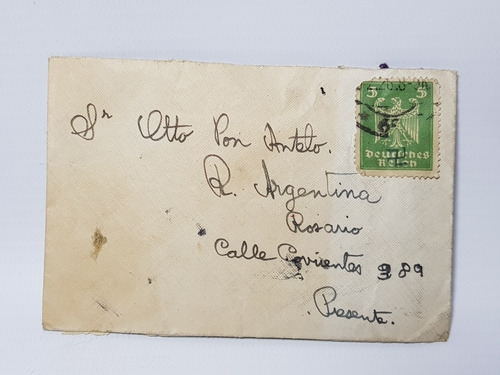 5 5
Deutsches
Reich
Sr Otto Pon Antelo.
R. Argentina
Rosario
Calle Corrientes 989
Presente.